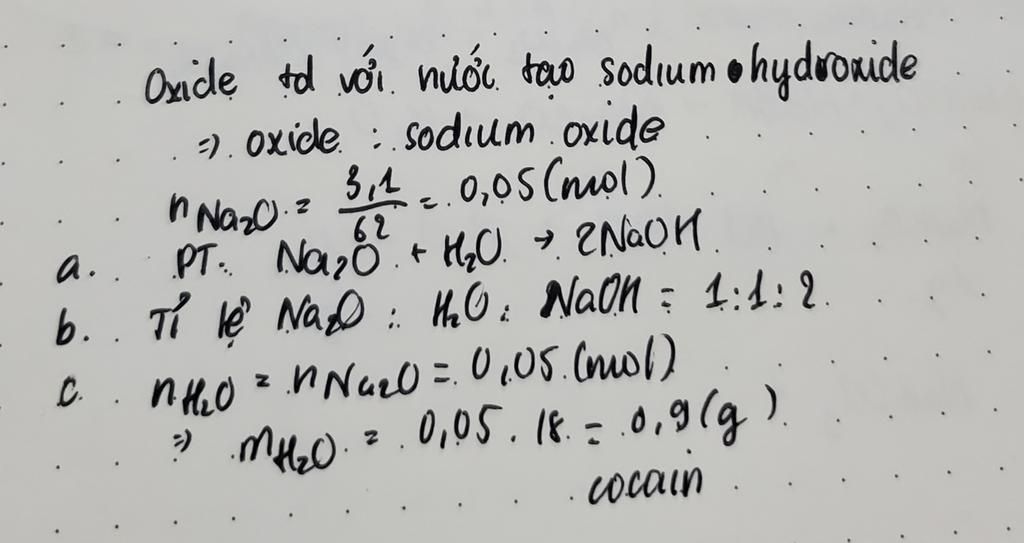 Oxide td với nước tạo sodium hydroxide
=> oxide : sodium oxide
nNa₂O = 3,1/62 = 0,05 (mol)
a. PT: Na₂O + H₂O → 2NaOH
b. Tỉ lệ Na₂O : H₂O : NaOH = 1:1:2
c. nH₂O = nNa₂O = 0,05 (mol)
=> mH₂O = 0,05 . 18 = 0,9 (g)
cocain